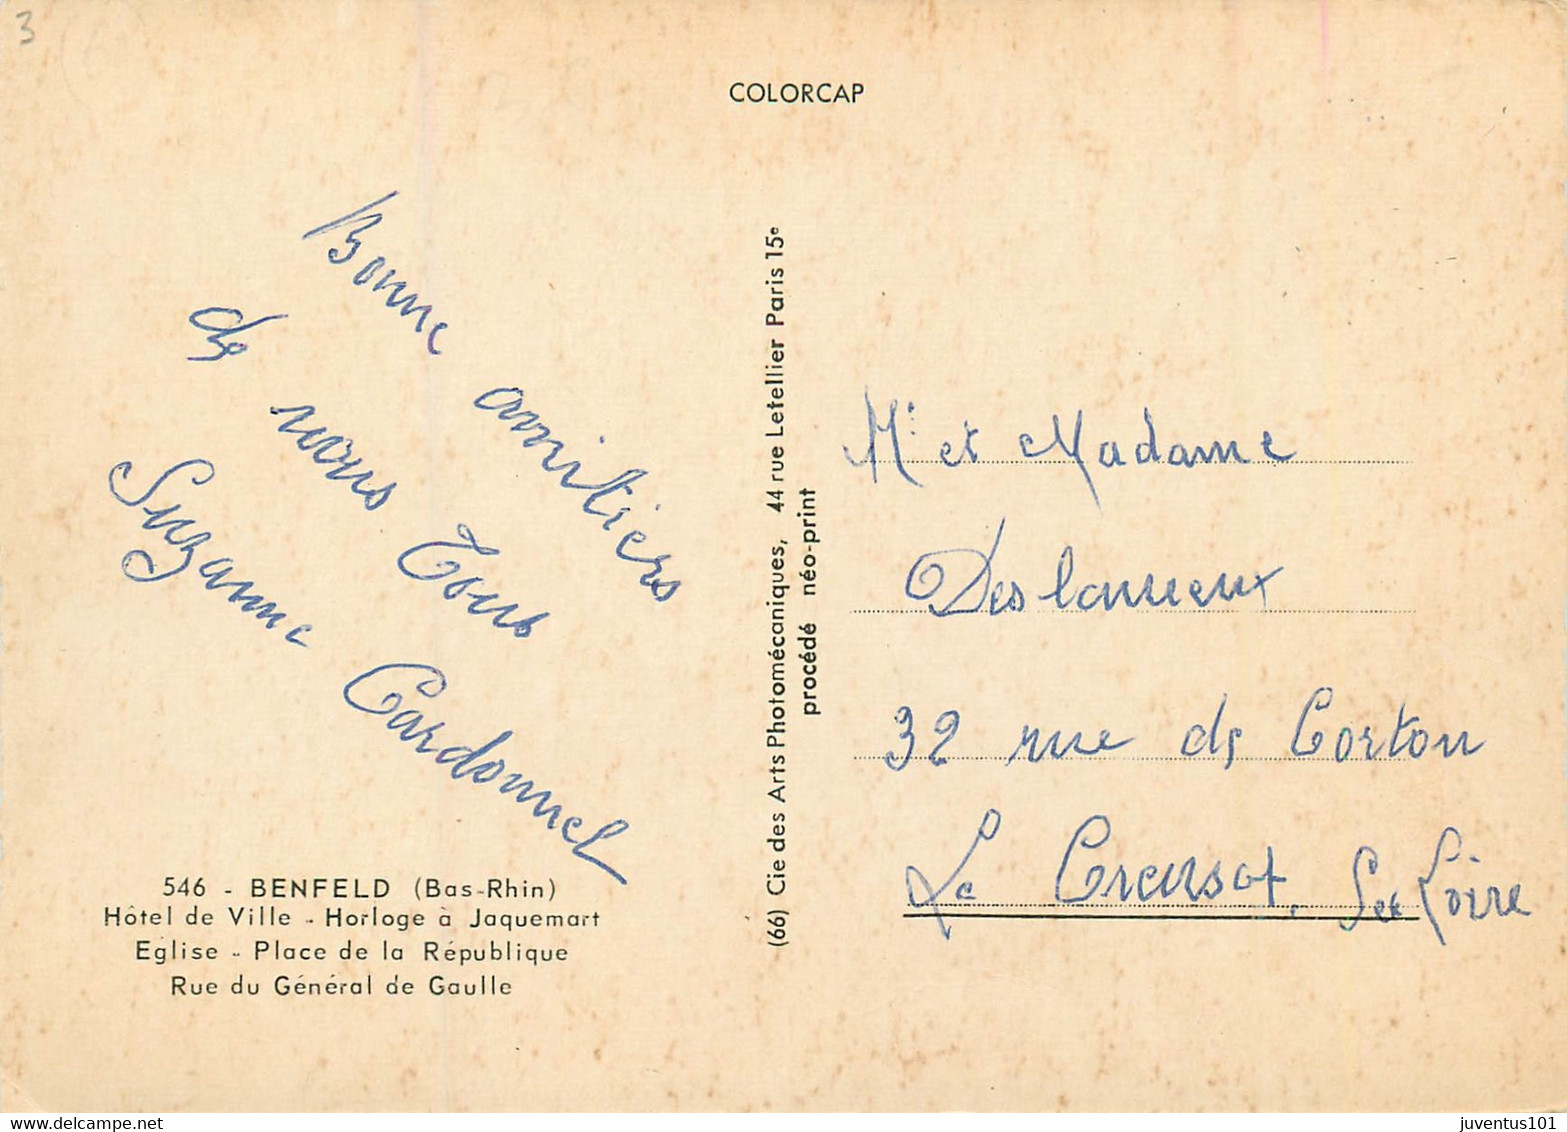 3
COLORCAP
Bonne amitiers
de nous Tous
Suzanne Cardonnel
546 - BENFELD (Bas-Rhin)
Hôtel de Ville - Horloge à Jaquemart
Eglise - Place de la République
Rue du Général de Gaulle
(66) Cie des Arts Photomécaniques, 44 rue Letellier Paris 15e
procédé néo-print
Mr et Madame
32 rue de Corton
Le Creusot. S et Loire
delcampe.net
juventus101